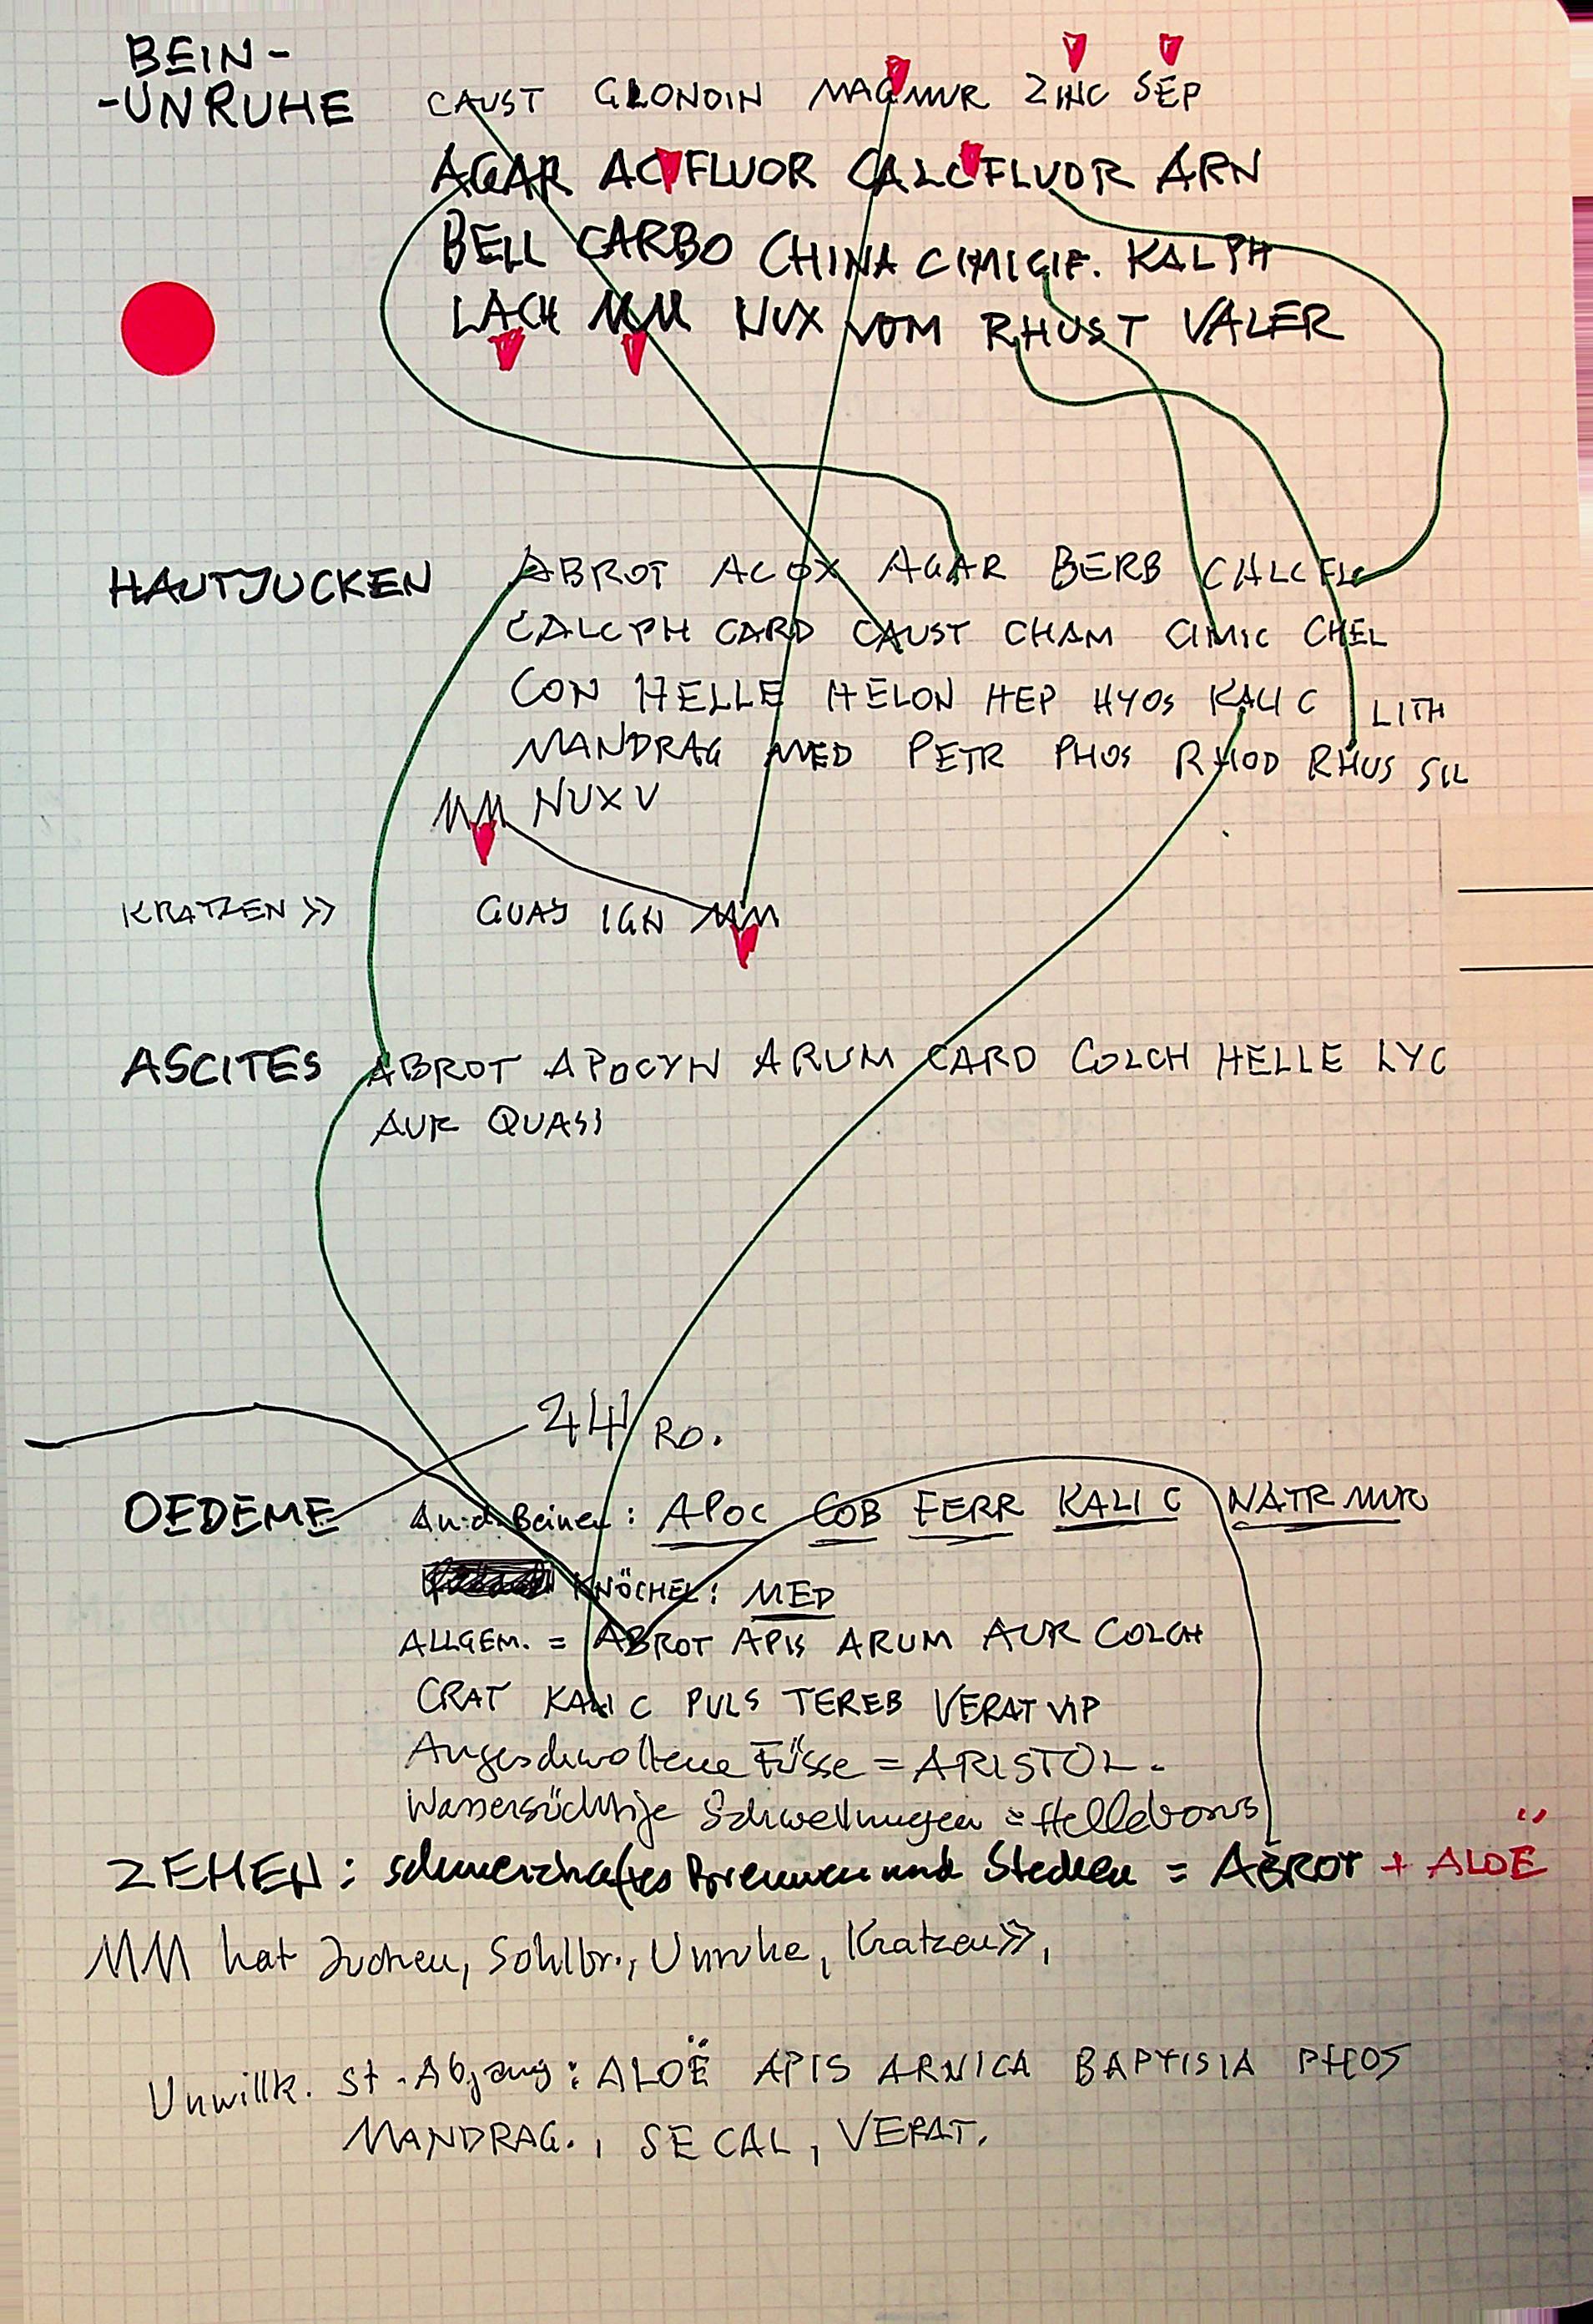 BEIN-
-UNRUHE CAUST GLONOIN MAGMUR ZINC SEP
AGAR AC FLUOR CALC FLUOR ARN
BELL CARBO CHINA CIMICIF. KALPH
LACH MM NUX VOM RHUST VALER
HAUTJUCKEN ABROT ACOX AGAR BERB CALC FLU
CALCPH CARD CAUST CHAM CIMIC CHEL
CON HELLE HELON HEP HYOS KALI C LITH
MANDRAG MED PETR PHOS RHOD RHUS SIL
MM NUX V
KRATZEN >> GUAJ IGN MM
ASCITES ABROT APOCYN ARUM CARD COLCH HELLE LYC
AUR QUASS
RO.
OEDEME An.d.Beinen: APOC COB FERR KALI C NATR MUR
KNÖCHEL: MED
ALLGEM. = ABROT APIS ARUM AUR COLCH
CRAT KALI C PULS TEREB VERAT VIP
Angeschwollene Füsse = ARISTOL.
Wassersüchtige Schwellungen = Helleborus
ZEHEN: schmerzhaftes Brennen und Stechen = ABROT + ALOË
MM hat Jucken, Sohlbr., Unruhe, Kratzen>>,
Unwillk. St.-Abgang: ALOË APIS ARNICA BAPTISIA PHOS
MANDRAG., SECAL, VERAT.